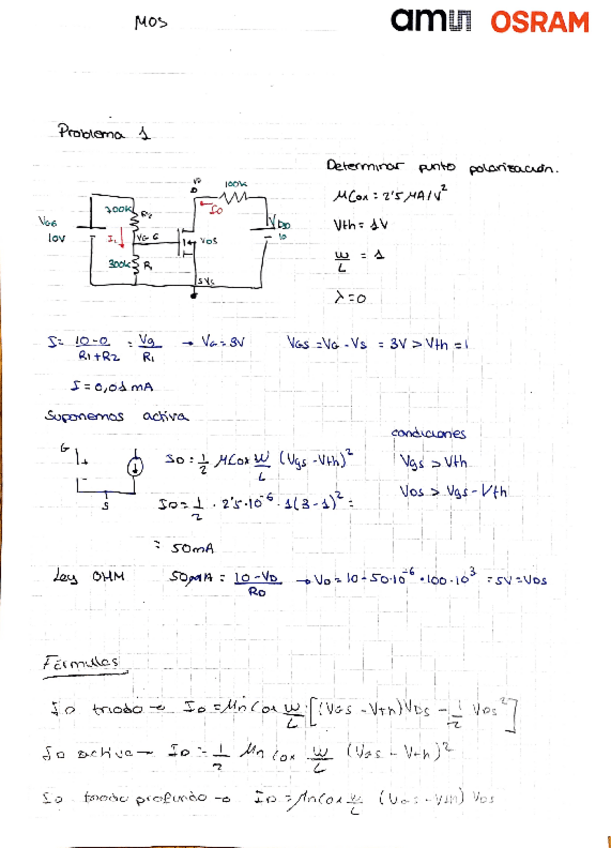 MOS
amu OSRAM
Problema 1
Determinar punto polarización.
μCox = 2'5 μA/V²
Vth = 1V
W/L = 1
λ=0
VGG 10V
700K R2
VG G
I1
300K R1
VD D
ID
100K
VDD 10
VDS
S VS
I = (10-0)/(R1+R2) = Vg/R1 → VG = 3V VGS = VG - VS = 3V > Vth = 1
I = 0,01 mA
Suponemos activa
condiciones
G + - S
ID = 1/2 μCox W/L (Vgs - Vth)²
Vgs > Vth
ID = 1/2 · 2'5·10⁻⁶ · 1(3-1)² =
VDS > Vgs - Vth
= 50mA
Ley OHM 50μA = (10-VD)/RD → VD = 10 - 50·10⁻⁶ · 100·10³ = 5V = VDS
Fórmulas
ID triodo → ID = μnCox W/L [(VGS - Vth)VDS - 1/2 VDS²]
ID activa → ID = 1/2 μnCox W/L (VGS - Vth)²
ID triodo profundo → ID = μnCox W/L (VGS - Vth) VDS